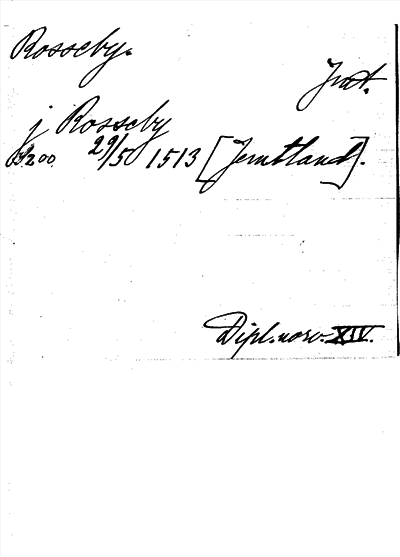 Rosseby.
Jmt.
j Rosseby
s. 200. 29/5 1513 [Jemtland].
Dipl. norv. XIV.